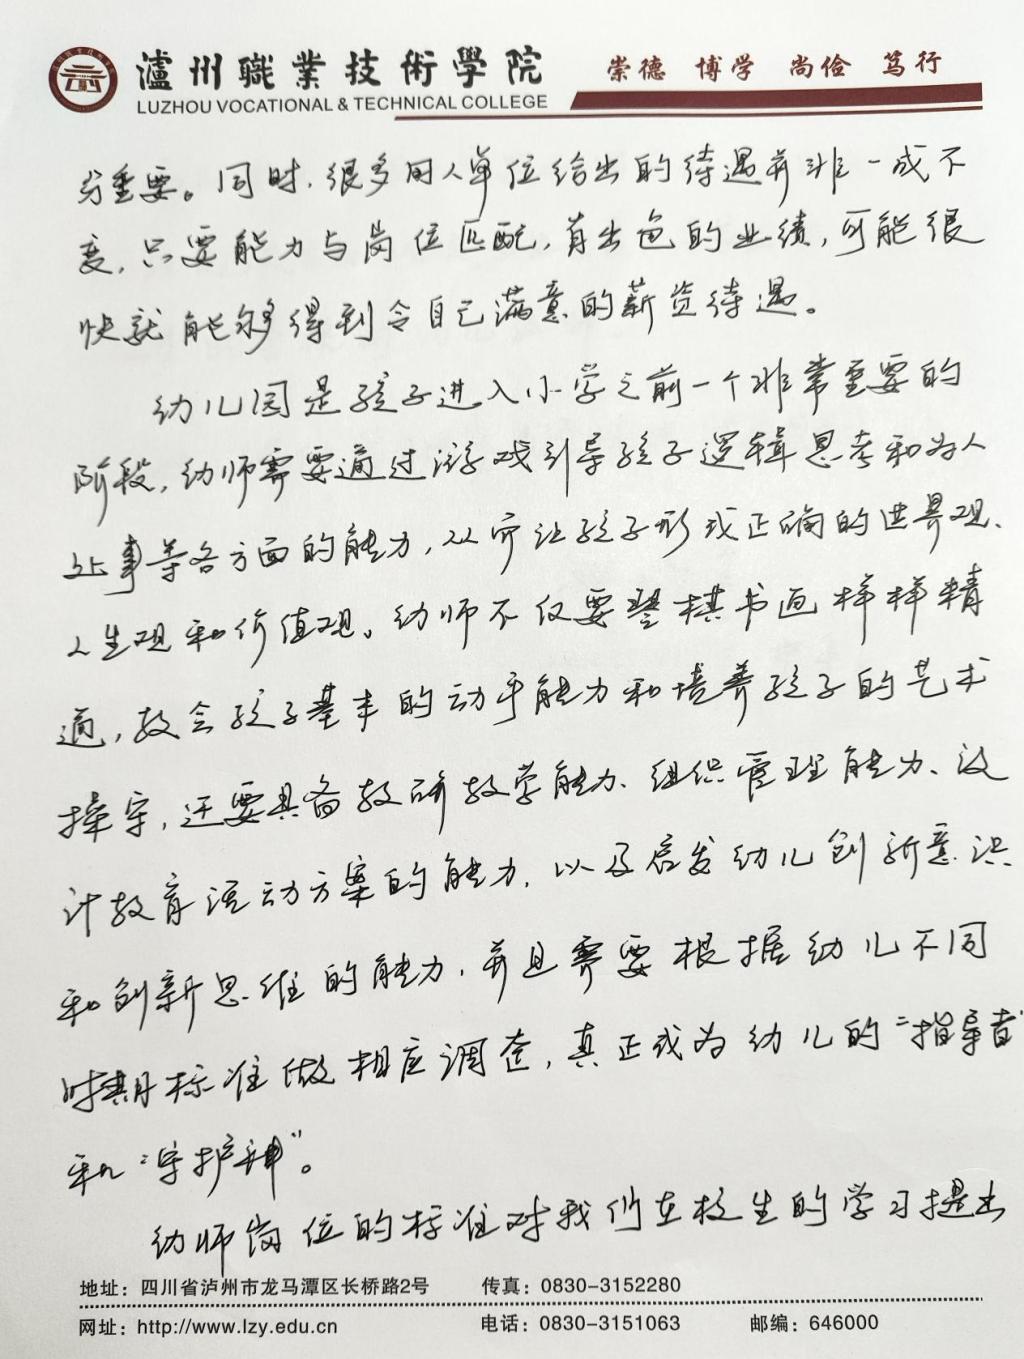 瀘州職業技術學院
LUZHOU VOCATIONAL & TECHNICAL COLLEGE
崇德 博学 尚俭 笃行
分重要。同时,很多用人单位给出的待遇并非一成不
变,只要能力与岗位匹配,有出色的业绩,可能很
快就能够得到令自己满意的薪资待遇。
幼儿园是孩子进入小学之前一个非常重要的
阶段,幼师需要通过游戏引导孩子逻辑思考和为人
处事等各方面的能力,从而让孩子形成正确的世界观、
人生观和价值观。幼师不仅要琴棋书画样样精
通,教会孩子基本的动手能力和培养孩子的艺术
操守,还要具备教研教学能力、组织管理能力、设
计教育活动方案的能力,以及启发幼儿创新意识
和创新思维的能力,并且需要根据幼儿不同
时期标准做相应调查,真正成为幼儿的“指导者”
和“守护神”。
幼师岗位的标准对我们在校生的学习提出
地址:四川省泸州市龙马潭区长桥路2号 传真:0830-3152280
网址:http://www.lzy.edu.cn 电话:0830-3151063 邮编:646000